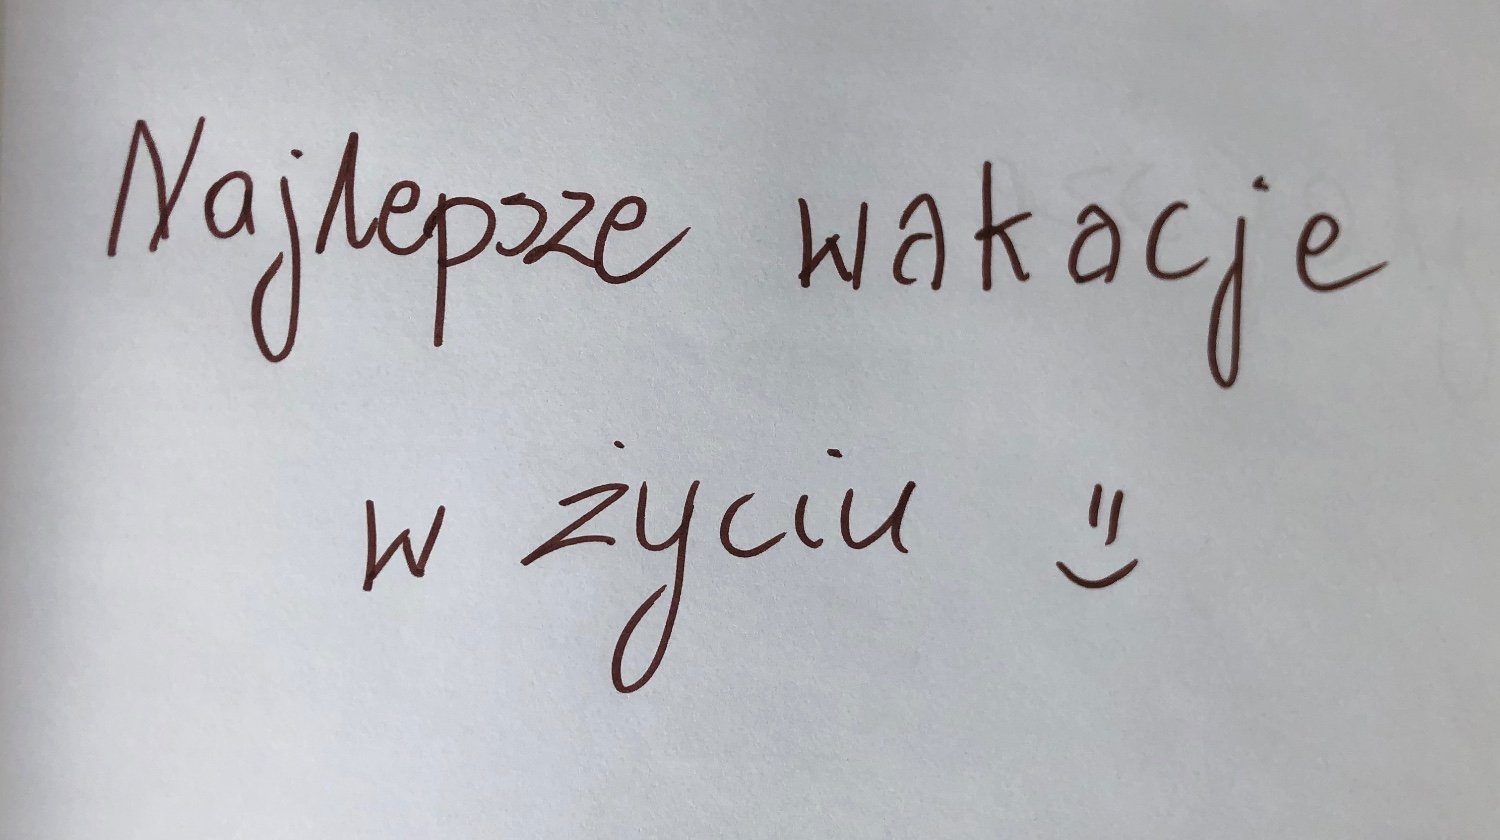 Najlepsze wakacje
w życiu